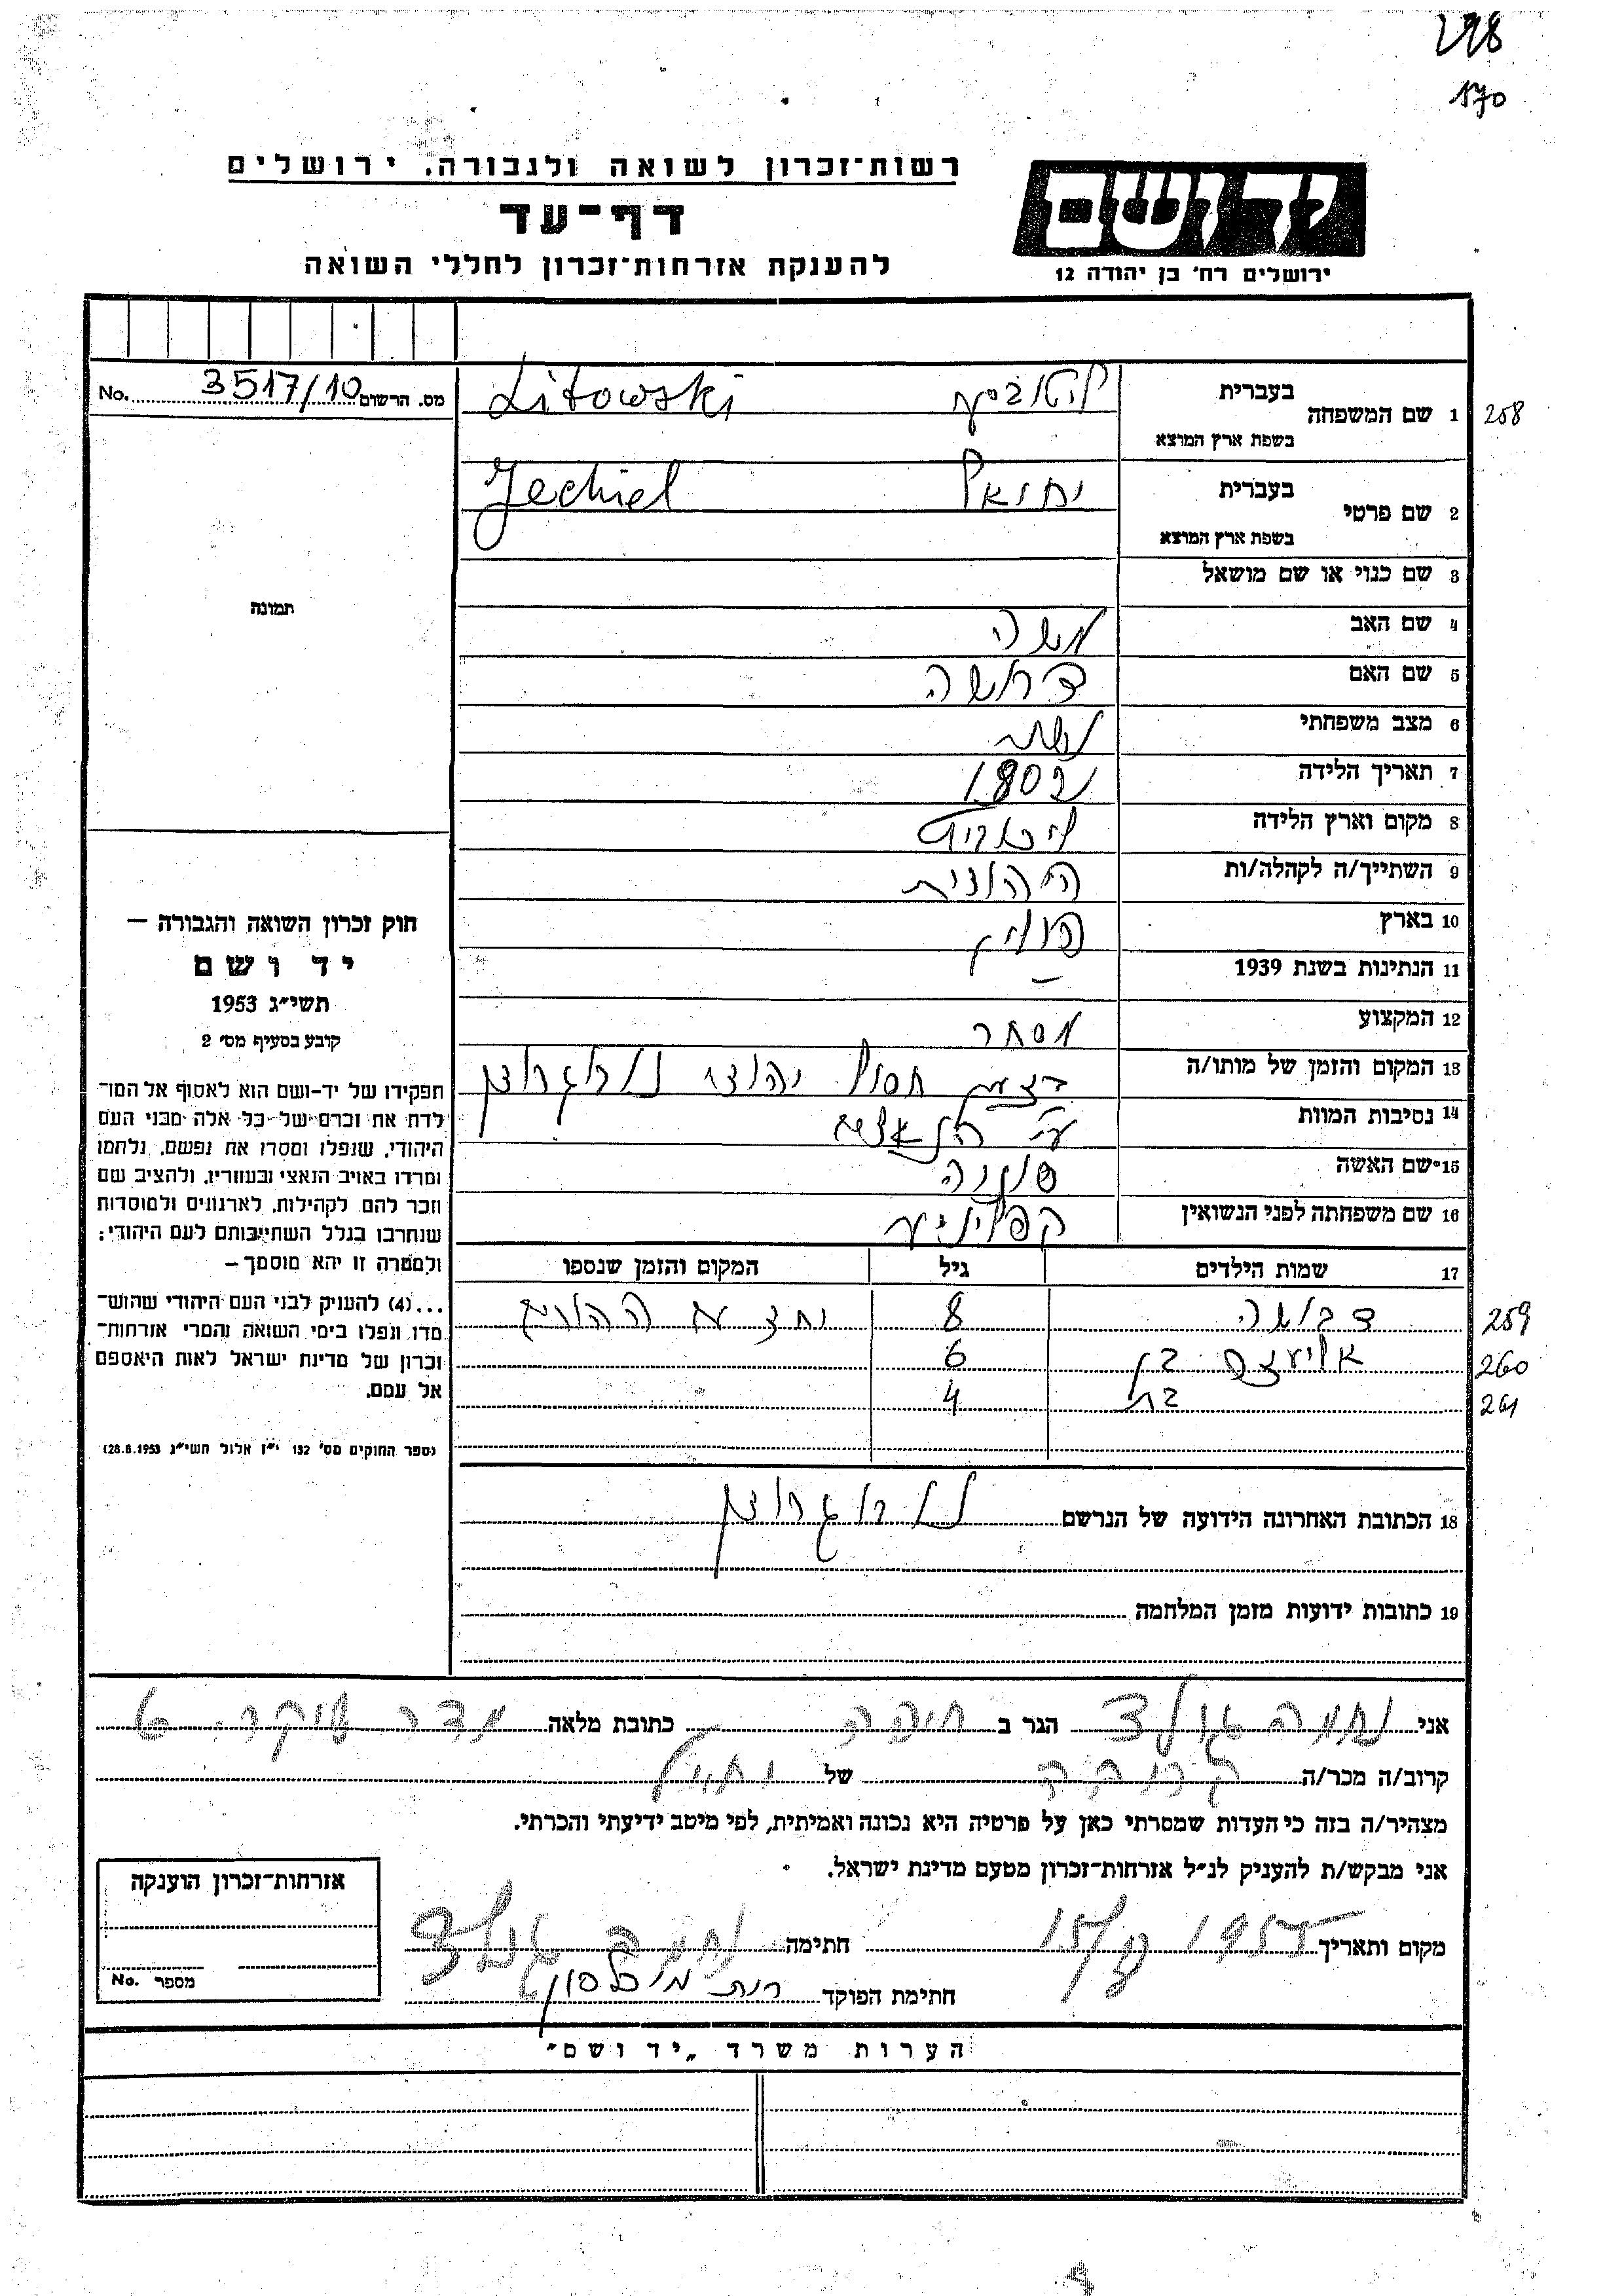 298
170
רשות־זכרון לשואה ולגבורה. ירושלים
יד ושם
דף־עד
להענקת אזרחות־זכרון לחללי השואה
ירושלים רח׳ בן יהודה 12
בעברית
1 שם המשפחה
בשפת ארץ המוצא
Litowski
258
No. 3517/10 מס. הרשום
בעברית
2 שם פרטי
בשפת ארץ המוצא
יחיאל Jechiel
3 שם כנוי או שם מושאל
4 שם האב משה
5 שם האם
6 מצב משפחתי נשוי
7 תאריך הלידה
8 מקום וארץ הלידה
9 השתייך/ה לקהלה/ות
10 בארץ פולין
11 הנתינות בשנת 1939 –
12 המקצוע מסחר
13 המקום והזמן של מותו/ה בצעת חסול יהודי
14 נסיבות המוות ע״י הנאצים
15 שם האשה סוניה
16 שם משפחתה לפני הנשואין
17 שמות הילדים גיל המקום והזמן שנספו
8 יחד עם ההורים 259
אליעזר בן 6 260
בת 4 261
תמונה
חוק זכרון השואה והגבורה —
יד ושם
תשי״ג 1953
קובע בסעיף מס׳ 2
תפקידו של יד-ושם הוא לאסוף אל המו־
לדת את זכרם של כל אלה מבני העם
היהודי, שנפלו ומסרו את נפשם, נלחמו
ומרדו באויב הנאצי ובעוזריו, ולהציב שם
וזכר להם לקהילות, לארגונים ולמוסדות
שנחרבו בגלל השתייכותם לעם היהודי;
ולמטרה זו יהא מוסמך –
...(4) להעניק לבני העם היהודי שהוש־
מדו ונפלו בימי השואה והמרי אזרחות־
זכרון של מדינת ישראל לאות היאספם
אל עמם.
(ספר החוקים מס׳ 132 י״ז אלול תשי״ג 28.8.1953)
18 הכתובת האחרונה הידועה של הנרשם
19 כתובות ידועות מזמן המלחמה
אני נחמה גולד הגר ב חיפה כתובת מלאה הדר 6
קרוב/ה מכר/ה קרובה של יחיאל
מצהיר/ה בזה כי העדות שמסרתי כאן על פרטיה היא נכונה ואמיתית, לפי מיטב ידיעתי והכרתי.
אני מבקש/ת להעניק לנ״ל אזרחות־זכרון מטעם מדינת ישראל.
מקום ותאריך חתימה נחמה גולד
חתימת הפוקד רות מיכלסון
אזרחות־זכרון הוענקה
מספר No.
הערות משרד „יד ושם״